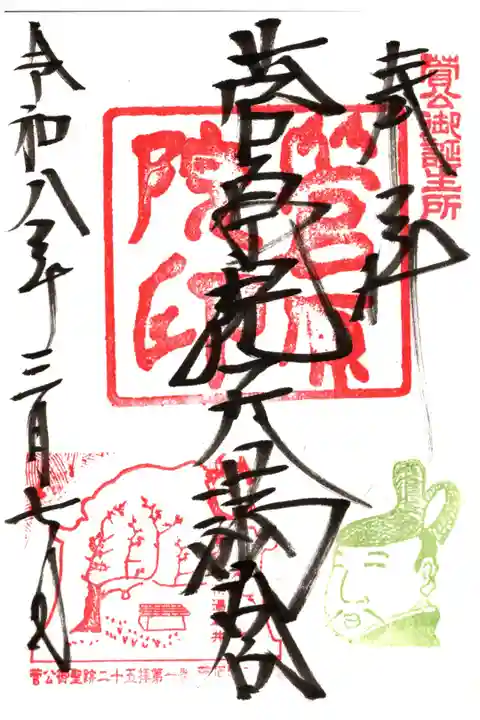 菅公御誕生所
奉拝
菅原院天満宮
菅原院印
令和八年三月七日
湯井
菅公御聖跡二十五拝第一番